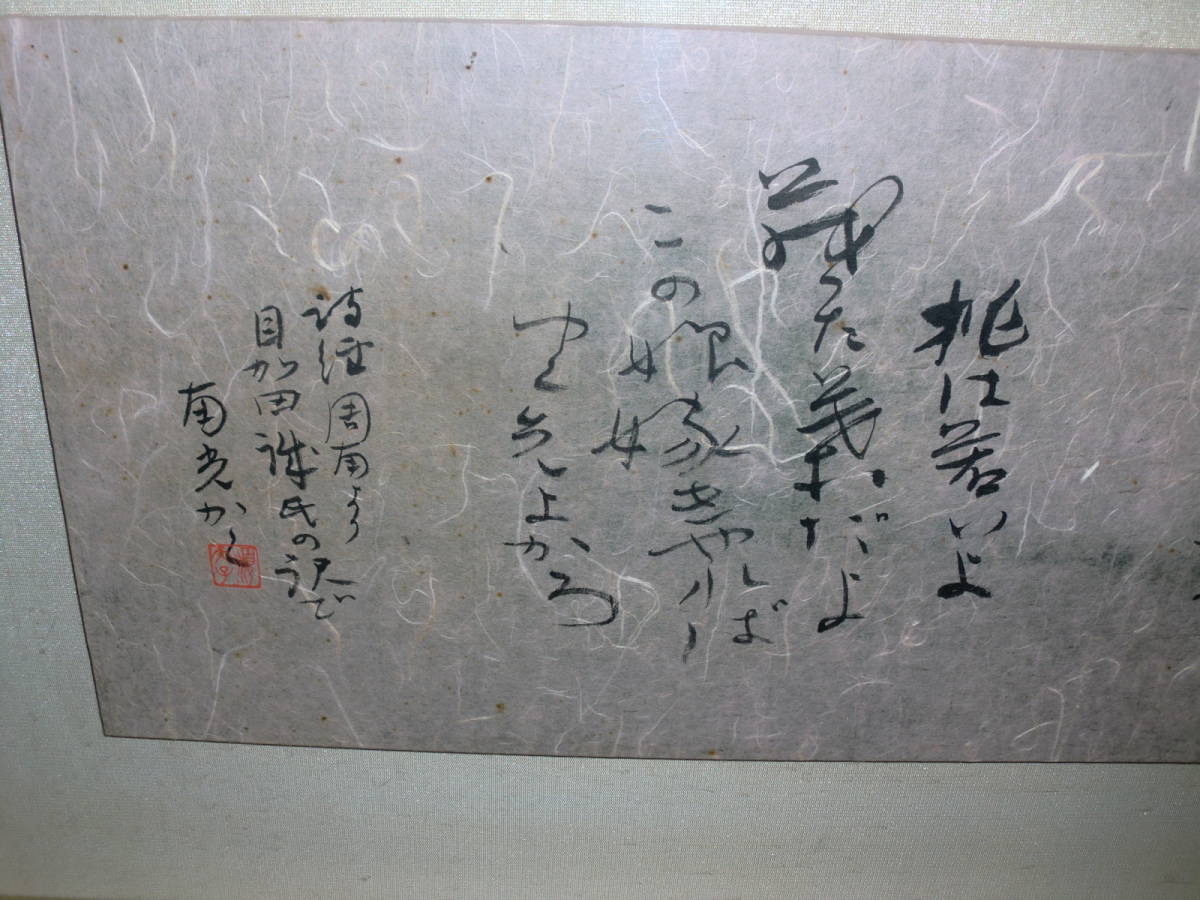 桃は若いよ
茂った葉だよ
この娘嫁きゃれば
ゆく先よかろ
詩経周南より
目加田誠氏の訳で
南光かく